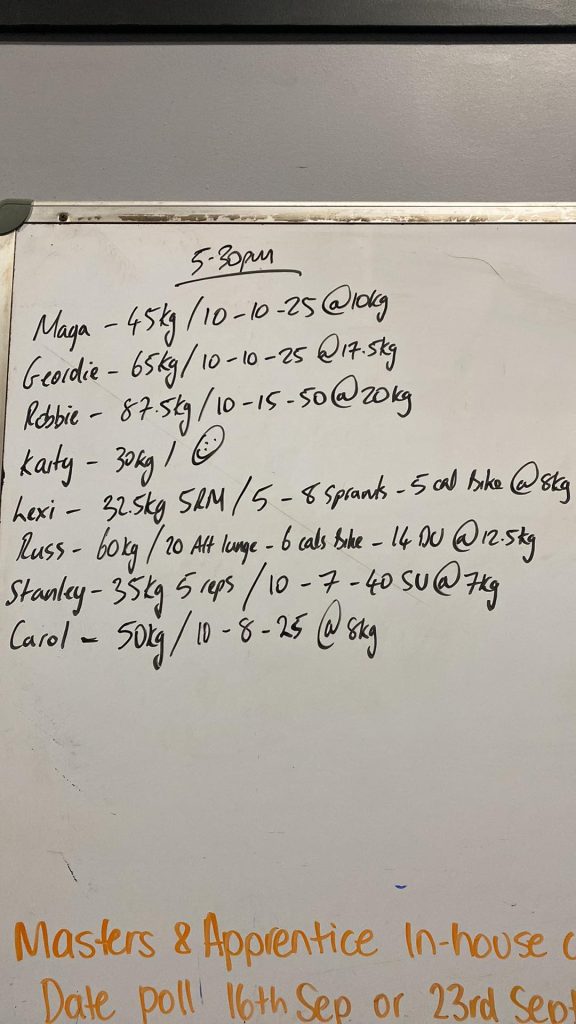 5-30pm
Maga - 45kg / 10 - 10 - 25 @ 10kg
Geordie - 65kg / 10 - 10 - 25 @ 17.5kg
Robbie - 87.5kg / 10 - 15 - 50 @ 20kg
Karty - 30kg /
Lexi - 32.5kg 5RM / 5 - 8 Sprawls - 5 cal Bike @ 8kg
Russ - 60kg / 20 Alt lunge - 6 cals Bike - 14 DU @ 12.5kg
Stanley - 35kg 5 reps / 10 - 7 - 40 SU @ 7kg
Carol - 50kg / 10 - 8 - 25 @ 8kg
Masters & Apprentice In-house
Date poll 16th Sep or 23rd Sept